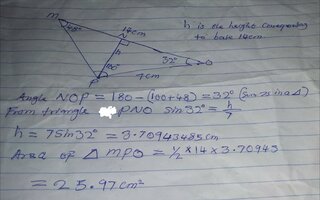 M
14cm
h is the height corresponding
to base 14cm
N
48°
h
32°
O
100°
7cm
P
Angle NOP = 180 - (100+48) = 32° (sum
From triangle PNO sin32° = h/7
h = 7sin32° = 3.70943485cm
Area of △ MPO = 1/2 × 14 × 3.70943
= 25.97cm²